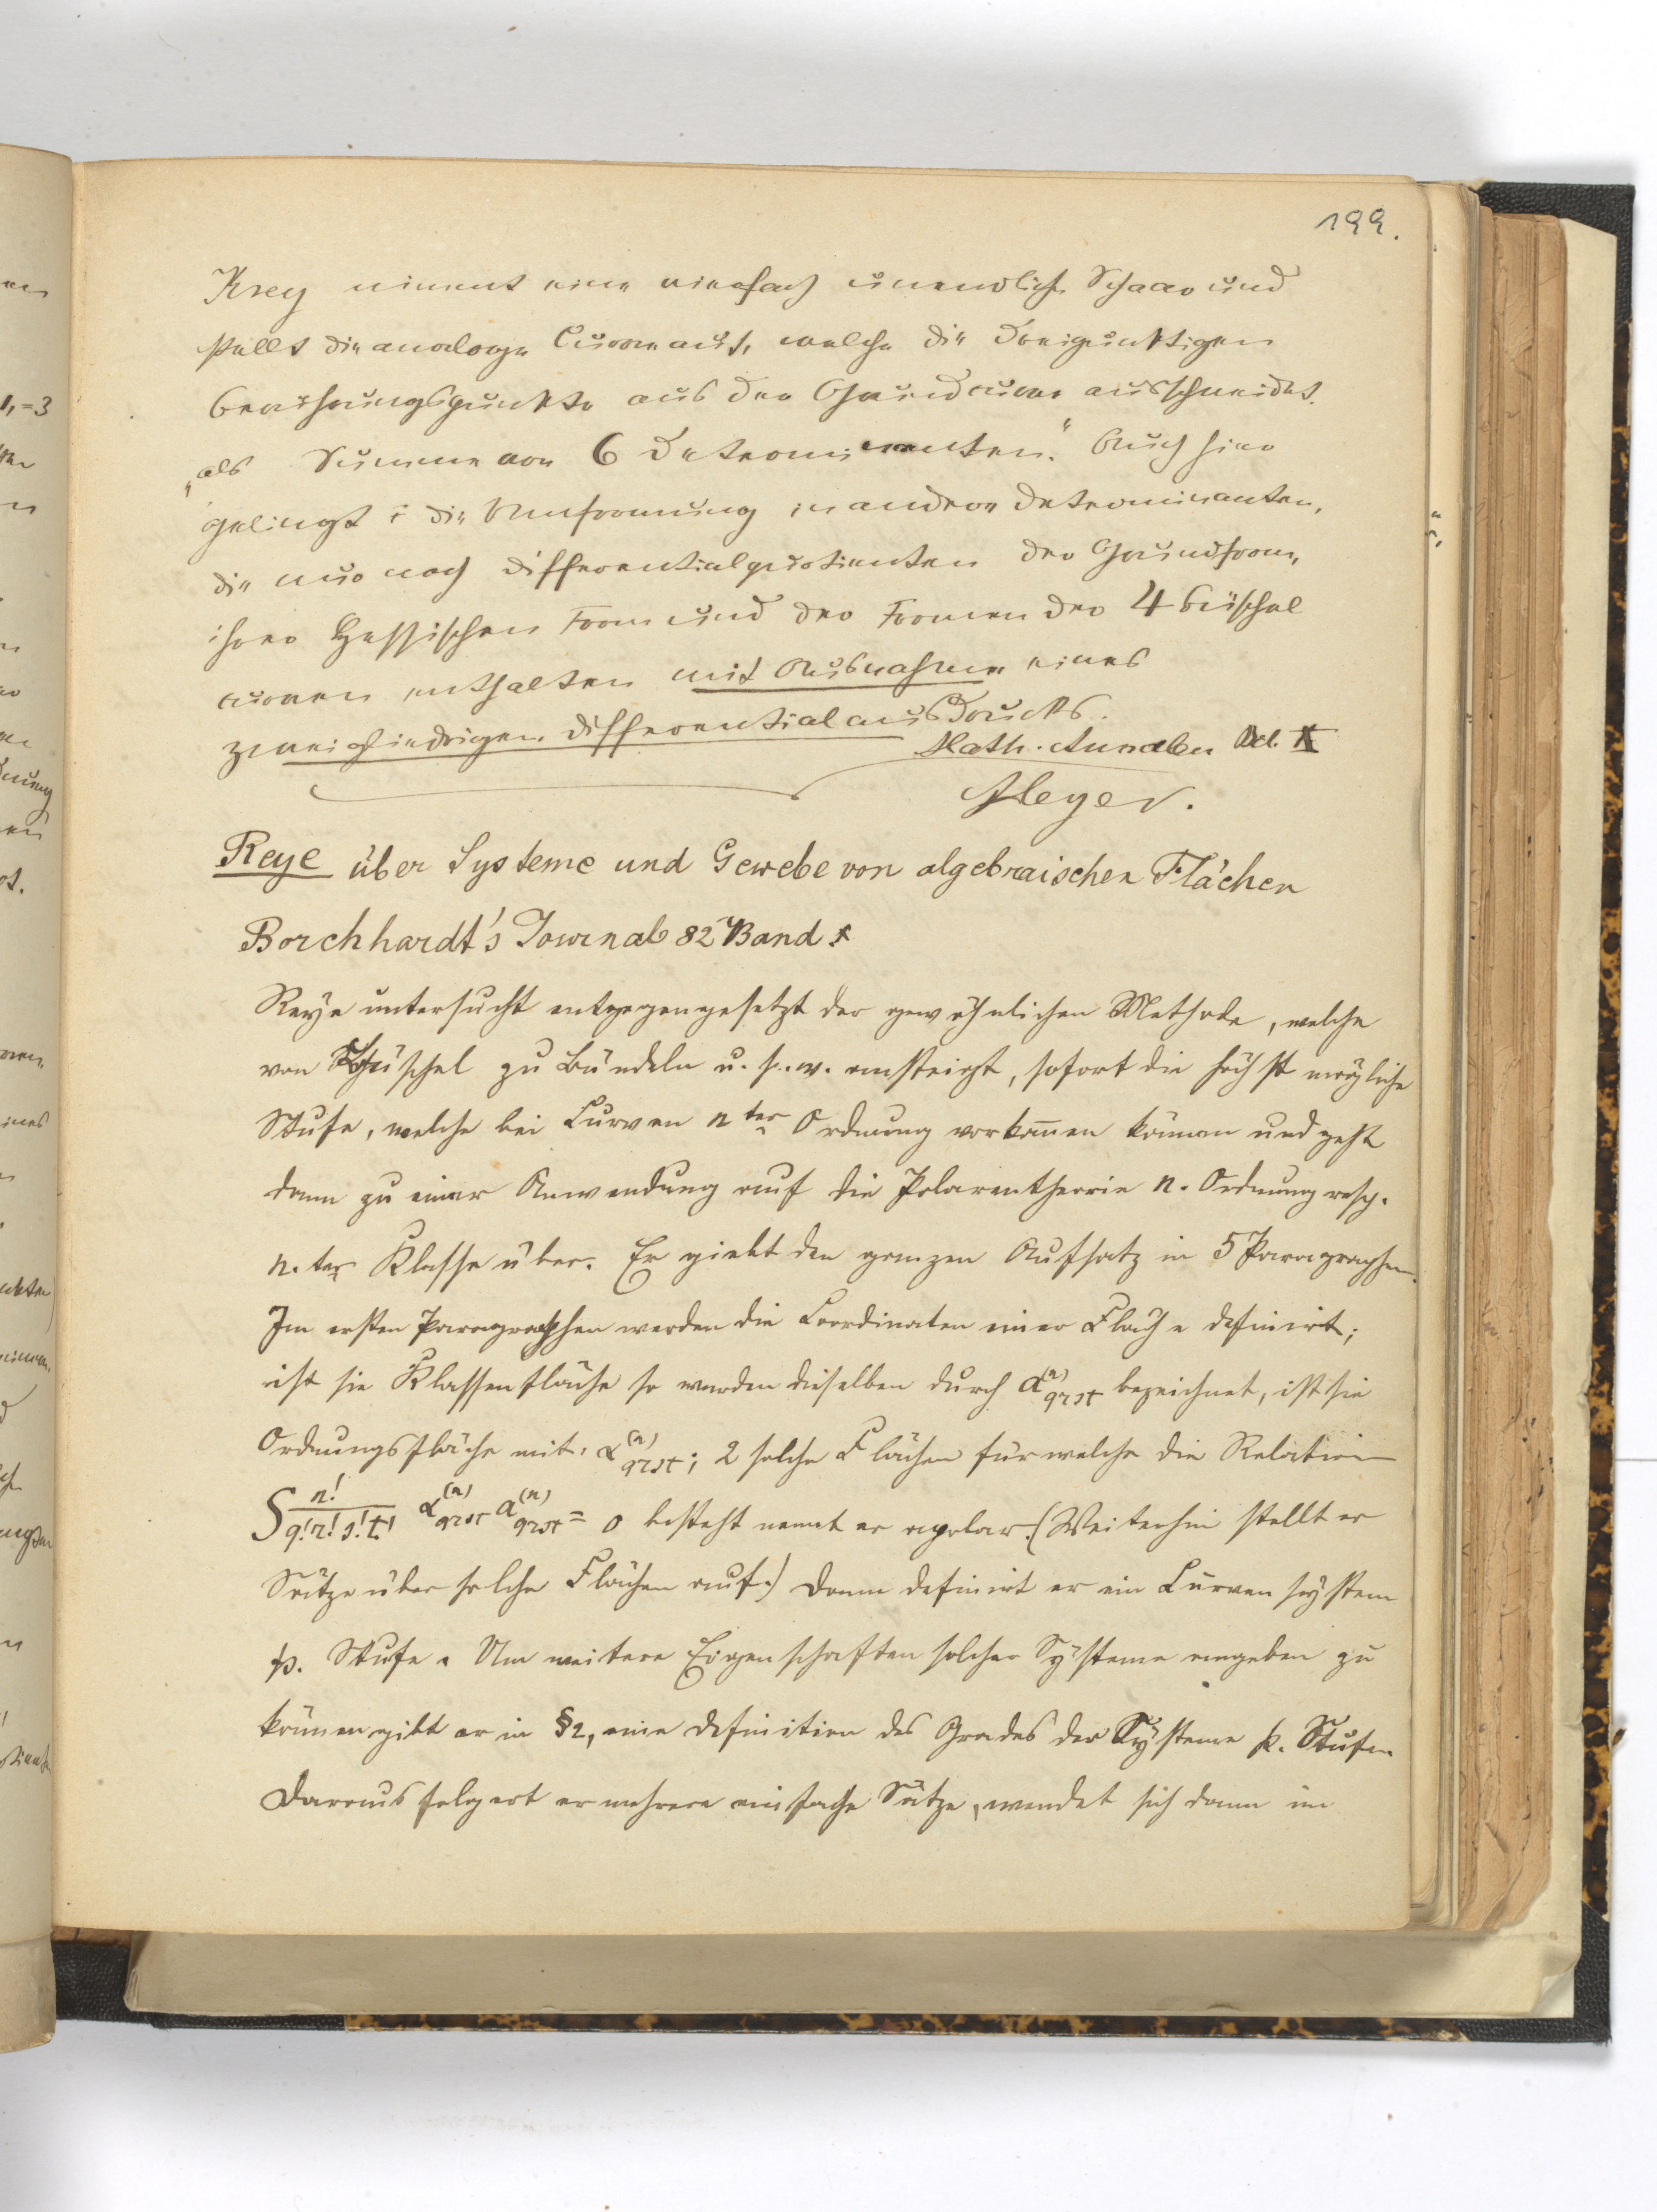 199.
Krey nimmt eine vierfach unendliche Schaar und
stellt die analoge Curve auf, welche die dreipunktigen
Berührungspunkte aus der Grundcurve ausschneidet.
„als Summe von 6 Determinanten." Auch hier
gelingt die Umformung in andere Determinanten,
die nur noch Differentialquotienten der Grundform,
ihrer Hessischen Form und der Formen der 4 Büschel
curven enthalten mit Ausnahme eines
zweigliedrigen Differentialausdrucks.
Math. Annalen Bd. X
Meyer.
Reye über Systeme und Gewebe von algebraischen Flächen
Borchhardt's Journal 82 Band
Reye untersucht entgegengesetzt der gewöhnlichen Methode, welche
von Büschel zu Bündeln u. s. w. ansteigt, sofort die höchst mögliche
Stufe, welche bei Curven n ter Ordnung vorkommen können und geht
dann zu einer Anwendung auf die Polarentheorie n. Ordnung resp.
n. ter Klasse über. Er giebt den ganzen Aufsatz in 5 Paragraphen.
Im ersten Paragraphen werden die Coordinaten einer Fläche definirt;
ist sie Klassenfläche so werden dieselben durch a^{(n)}_{qrst} bezeichnet, ist sie
Ordnungsfläche mit: α^{(n)}_{qrst}; 2 solche Flächen für welche die Relation
S n!/(q! r! s! t!) α^{(n)}_{qrst} a^{(n)}_{qrst} = 0 besteht nennt er apolar. (Weiterhin stellt er
Sätze über solche Flächen auf.) Dann definirt er ein Curvensystem
p. Stufe. Um weitere Eigenschaften solcher Systeme angeben zu
können gibt er in §2, eine Definition des Grades der Systeme k. Stufe.
Daraus folgert er mehrere einfache Sätze, wendet sich dann im